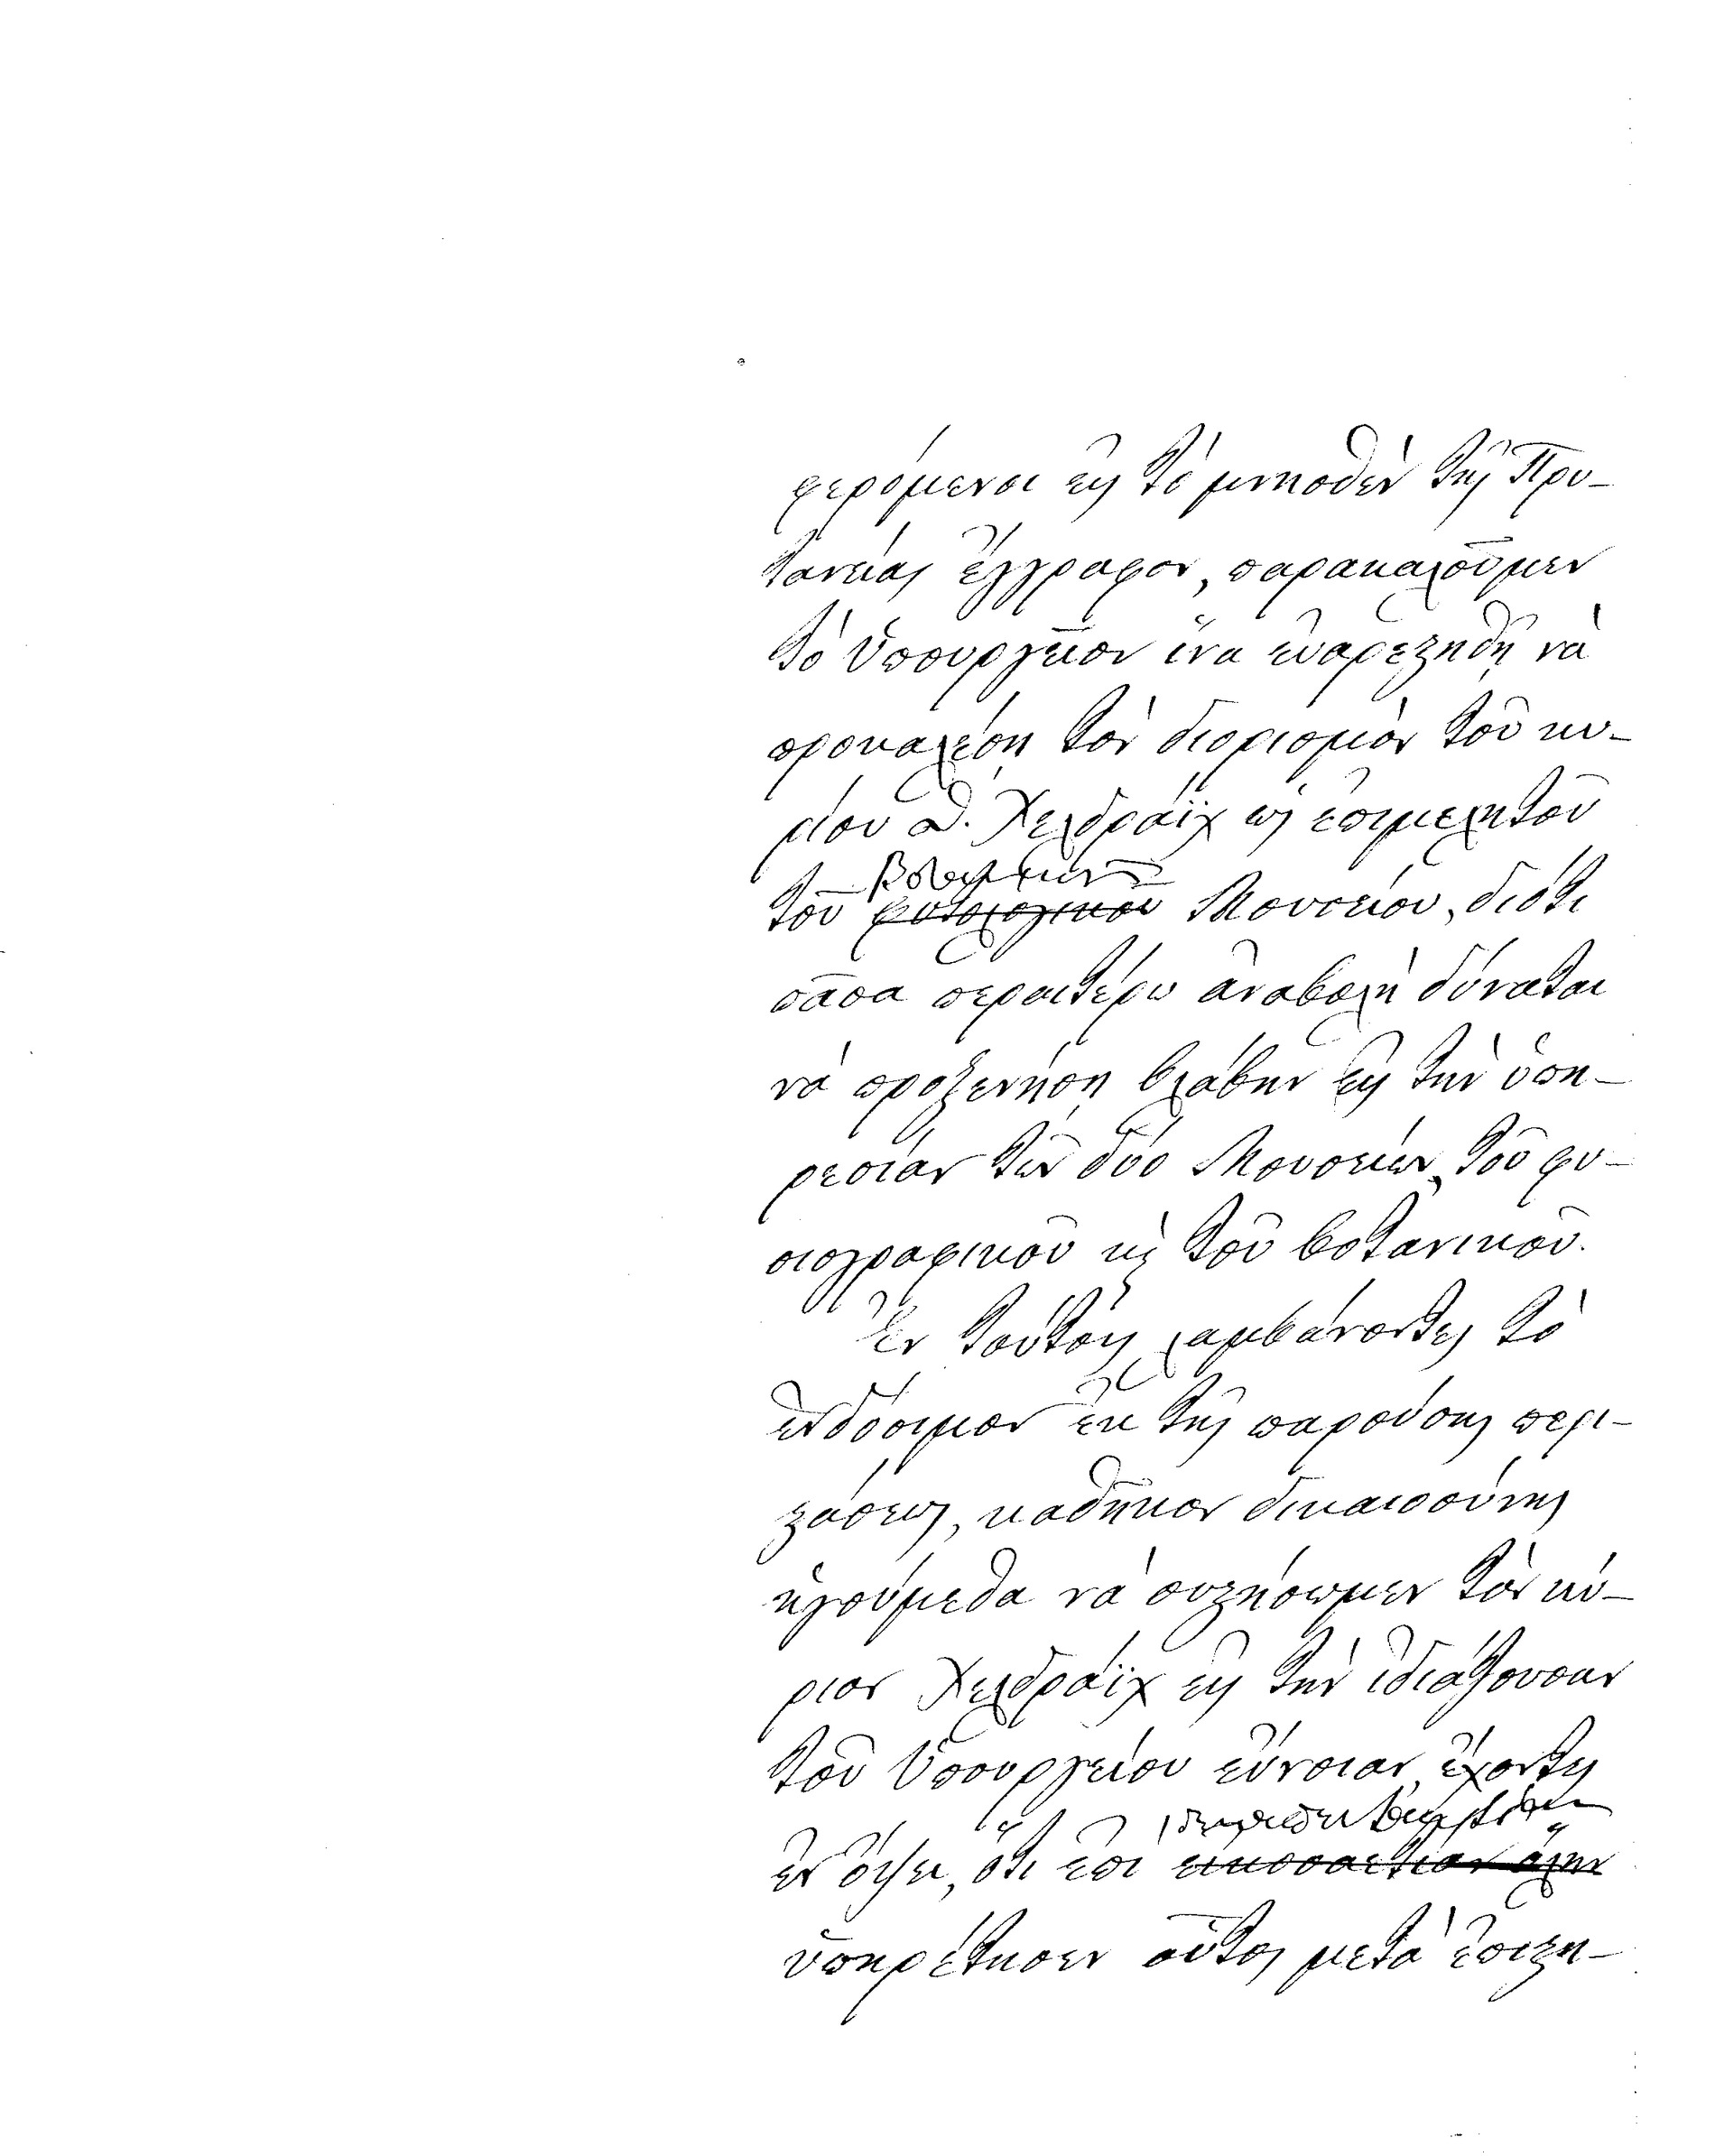 φερόμενοι εἰς τὸ μνησθὲν τῆς Πρυ-
τανείας ἔγγραφον, παρακαλοῦμεν
τὸ Ὑπουργεῖον ἵνα εὐαρεστηθῇ νὰ
προκαλέσῃ τὸν διορισμὸν τοῦ κυ-
ρίου Θ. Χελδράϊχ ὡς ἐπιμελητοῦ
βοτανικοῦ
τοῦ φυτολογικοῦ Μουσείου, διότι
πᾶσα περαιτέρω ἀναβολὴ δύναται
νὰ προξενήσῃ βλάβην εἰς τὴν ὑπη-
ρεσίαν τῶν δύο Μουσείων, τοῦ φυ-
σιογραφικοῦ κ̀ τοῦ βοτανικοῦ.
Ἐν τούτοις λαμβάνοντες τὸ
ἐνδόσιμον ἐκ τῆς παρούσης περι-
στάσεως, καθῆκον δικαιοσύνης
ἡγούμεθα νὰ συστήσωμεν τὸν κύ-
ριον Χελδράϊχ εἰς τὴν ἰδιάζουσαν
τοῦ Ὑπουργείου εὔνοιαν, ἔχοντες
ἐν ὄψει, ὅτι ἐπὶ εἰκοσαετίαν ὅλην
ὑπηρέτησεν οὗτος μετὰ ἐπιστη-